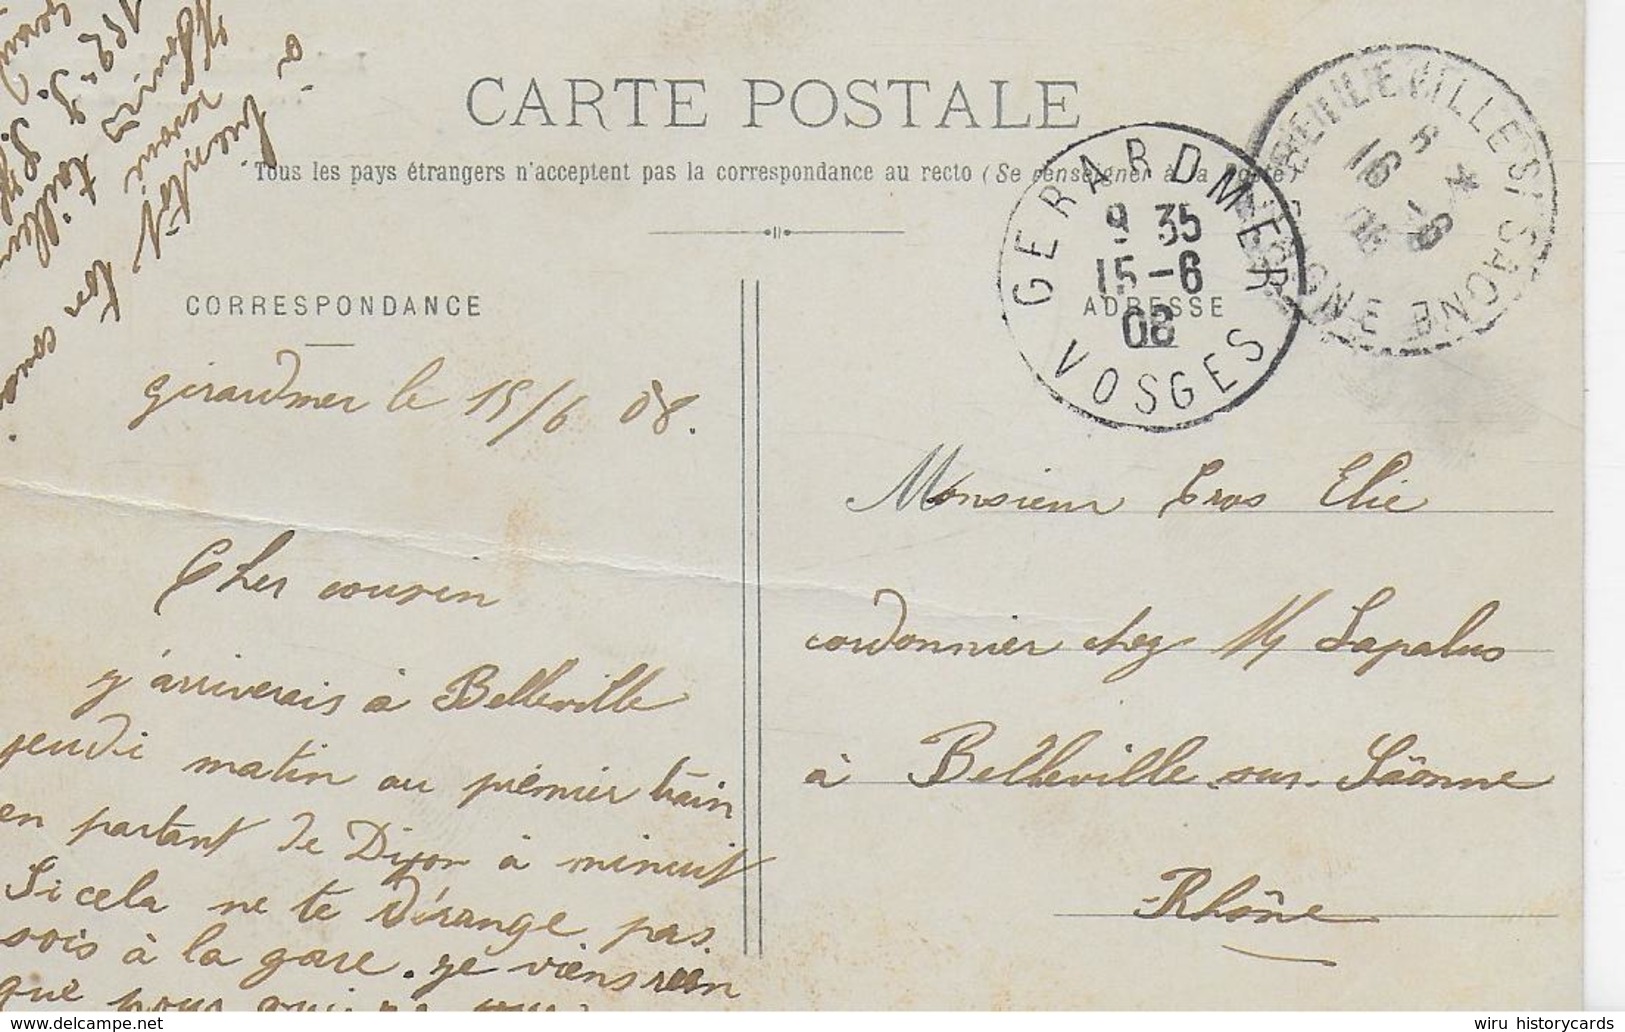 CARTE POSTALE
Tous les pays étrangers n'acceptent pas la correspondance au recto (Se renseigner à la Poste)
CORRESPONDANCE
ADRESSE
GERARDMER
9 35
15-6
08
VOSGES
BELLEVILLE S/ SAONE
16 -6
08
Girardmer le 15/6 08.
Cher cousin
j'arriverais à Belleville
jeudi matin au prémier train
en partant de Dijon à minuit
Si cela ne te dérange pas
sois à la gare. je viens rien
que pour
à
bientôt
Ton cousin
Monsieur Gros Elie
cordonnier chez M Lapalus
à Belleville sur Sâonne
Rhône
wiru historycards